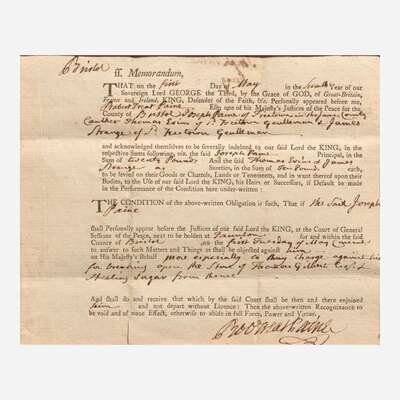 Bristol
ss. Memorandum,
THAT on the first Day of May in the Year of our
Sovereign Lord GEORGE the Third, by the Grace of GOD, of Great-Britain,
France and Ireland, KING, Defender of the Faith, &c. Personally appeared before me,
Robert Treat Paine Esq; one of his Majesty's Justices of the Peace for the
County of Bristol Joseph Paine of Freetown in the same County
Thomas Evins of sd. Freetown Gentleman & James
Strange of sd. Freetown Gentleman
and acknowledged themselves to be severally indebted to our said Lord the KING, in the
respective Sums following, viz. the said Joseph Paine Principal, in the
Sum of Twenty Pounds And the said Thomas Evins & James
Strange as Sureties, in the Sum of Ten Pounds each,
to be levied on their Goods or Chattels, Lands or Tenements, and in want thereof upon their
Bodies, to the Use of our said Lord the KING, his Heirs or Successors, if Default be made
in the Performance of the Condition here under-written:
THE CONDITION of the above-written Obligation is such, That if the said Joseph
Paine
shall Personally appear before the Justices of our said Lord the KING, at the Court of General
Sessions of the Peace, next to be holden at Taunton for and within the said
County of Bristol on the first Tuesday of May
to answer to such Matters and Things as shall be objected against him
on His Majesty's Behalf more especially to
for breaking open the of Gilbert Esq &
Stealing Sugar from thence
And shall do and receive that which by the said Court shall be then and there enjoined
him and not depart without Licence: Then the above-written Recognizance to
be void and of none Effect, otherwise to abide in full Force, Power and Virtue.
Robt Treat Paine